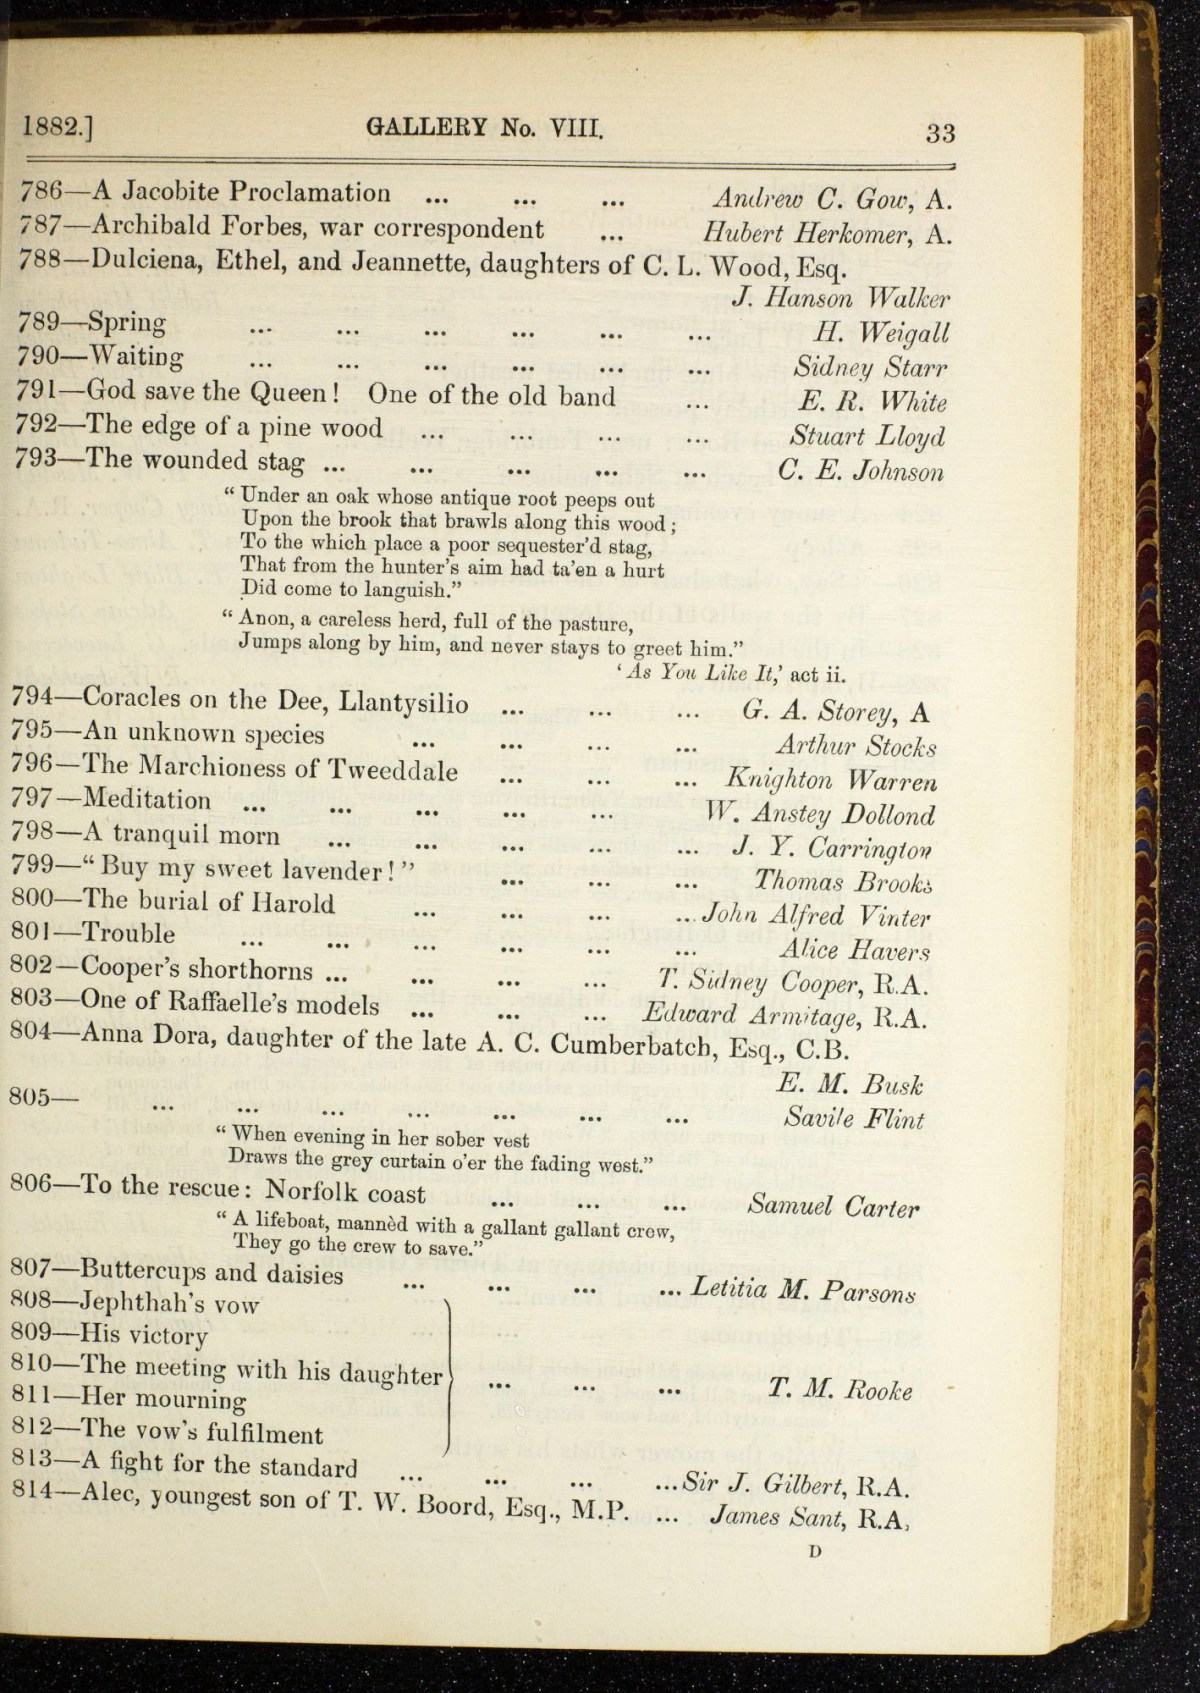 1882.] GALLERY No. VIII. 33
786—A Jacobite Proclamation ... ... ... Andrew C. Gow, A.
787—Archibald Forbes, war correspondent ... Hubert Herkomer, A.
788—Dulciena, Ethel, and Jeannette, daughters of C. L. Wood, Esq.
J. Hanson Walker
789—Spring ... ... ... ... ... ... H. Weigall
790—Waiting ... ... ... ... ... ... Sidney Starr
791—God save the Queen! One of the old band ... E. R. White
792—The edge of a pine wood ... ... ... ... Stuart Lloyd
793—The wounded stag ... ... ... ... ... C. E. Johnson
“Under an oak whose antique root peeps out
Upon the brook that brawls along this wood;
To the which place a poor sequester'd stag,
That from the hunter's aim had ta'en a hurt
Did come to languish.”
“Anon, a careless herd, full of the pasture,
Jumps along by him, and never stays to greet him.”
‘As You Like It,’ act ii.
794—Coracles on the Dee, Llantysilio ... ... ... G. A. Storey, A
795—An unknown species ... ... ... ... Arthur Stocks
796—The Marchioness of Tweeddale ... ... ... Knighton Warren
797—Meditation ... ... ... ... ... W. Anstey Dollond
798—A tranquil morn ... ... ... ... ... J. Y. Carrington
799—“Buy my sweet lavender!” ... ... ... Thomas Brooks
800—The burial of Harold ... ... ... ... John Alfred Vinter
801—Trouble ... ... ... ... ... ... Alice Havers
802—Cooper's shorthorns ... ... ... ... T. Sidney Cooper, R.A.
803—One of Raffaelle's models ... ... ... Edward Armitage, R.A.
804—Anna Dora, daughter of the late A. C. Cumberbatch, Esq., C.B.
E. M. Busk
805— ... ... ... ... ... ... ... Savile Flint
“When evening in her sober vest
Draws the grey curtain o'er the fading west.”
806—To the rescue: Norfolk coast ... ... ... Samuel Carter
“A lifeboat, mannèd with a gallant gallant crew,
They go the crew to save.”
807—Buttercups and daisies ... ... ... ... Letitia M. Parsons
808—Jephthah's vow
809—His victory
810—The meeting with his daughter ... ... ... T. M. Rooke
811—Her mourning
812—The vow's fulfilment
813—A fight for the standard ... ... ... ... Sir J. Gilbert, R.A.
814—Alec, youngest son of T. W. Boord, Esq., M.P. ... James Sant, R.A,
D